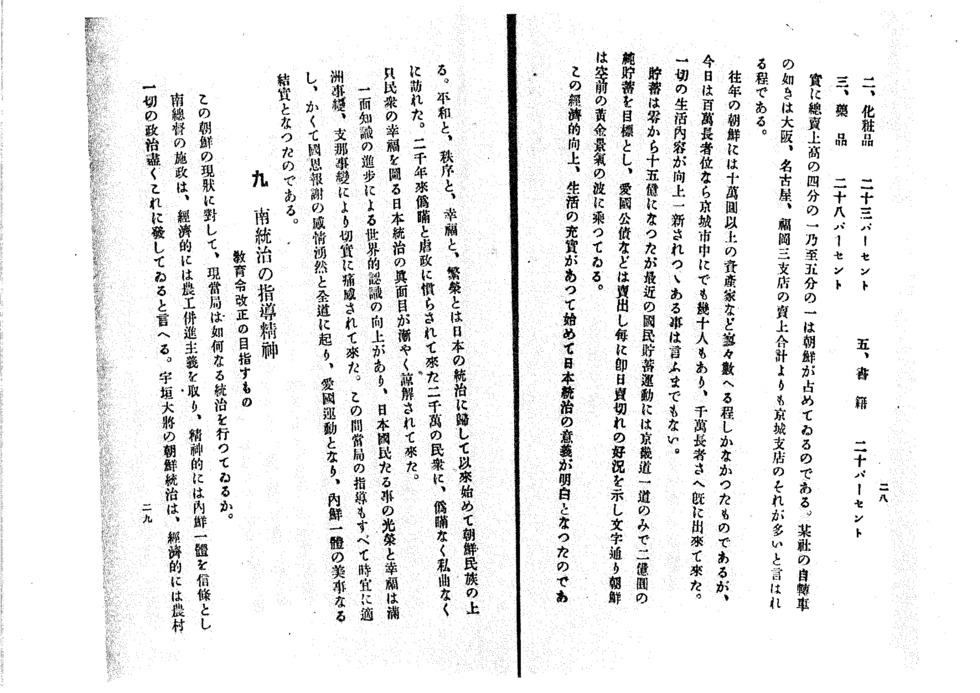 二八
二、化粧品　二十三パーセント　五、書籍　二十パーセント
三、藥品　二十八パーセント
實に總賣上高の四分の一乃至五分の一は朝鮮が占めてゐるのである。某社の自轉車
の如きは大阪、名古屋、福岡三支店の賣上合計よりも京城支店のそれが多いと言はれ
る程である。
往年の朝鮮には十萬圓以上の資產家など寥々數へる程しかなかつたものであるが、
今日は百萬長者位なら京城市中にでも幾十人もあり、千萬長者さへ旣に出來て來た。
一切の生活內容が向上一新されつゝある事は言ふまでもない。
貯蓄は零から十五億になつたが最近の國民貯蓄運動には京畿道一道のみで二億圓の
純貯蓄を目標とし、愛國公債などは賣出し每に卽日賣切れの好況を示し文字通り朝鮮
は空前の黃金景氣の波に乘つてゐる。
この經濟的向上、生活の充實があつて始めて日本統治の意義が明白となつたのであ
る。平和と、秩序と、幸福と、繁榮とは日本の統治に歸して以來始めて朝鮮民族の上
に訪れた。二千年來僞瞞と虐政に慣らされて來た二千萬の民衆に、僞瞞なく私曲なく
只民衆の幸福を圖る日本統治の眞面目が漸やく諒解されて來た。
一面知識の進步による世界的認識の向上があり、日本國民たる事の光榮と幸福は滿
洲事變、支那事變により切實に痛感されて來た。この間當局の指導もすべて時宜に適
し、かくて國恩報謝の感情湧然と全道に起り、愛國運動となり、內鮮一體の美事なる
結實となつたのである。
九　南統治の指導精神
敎育令改正の目指すもの
この朝鮮の現狀に對して、現當局は如何なる統治を行つてゐるか。
南總督の施政は、經濟的には農工併進主義を取り、精神的には內鮮一體を信條とし
一切の政治盡くこれに發してゐると言へる。宇垣大將の朝鮮統治は、經濟的には農村
二九